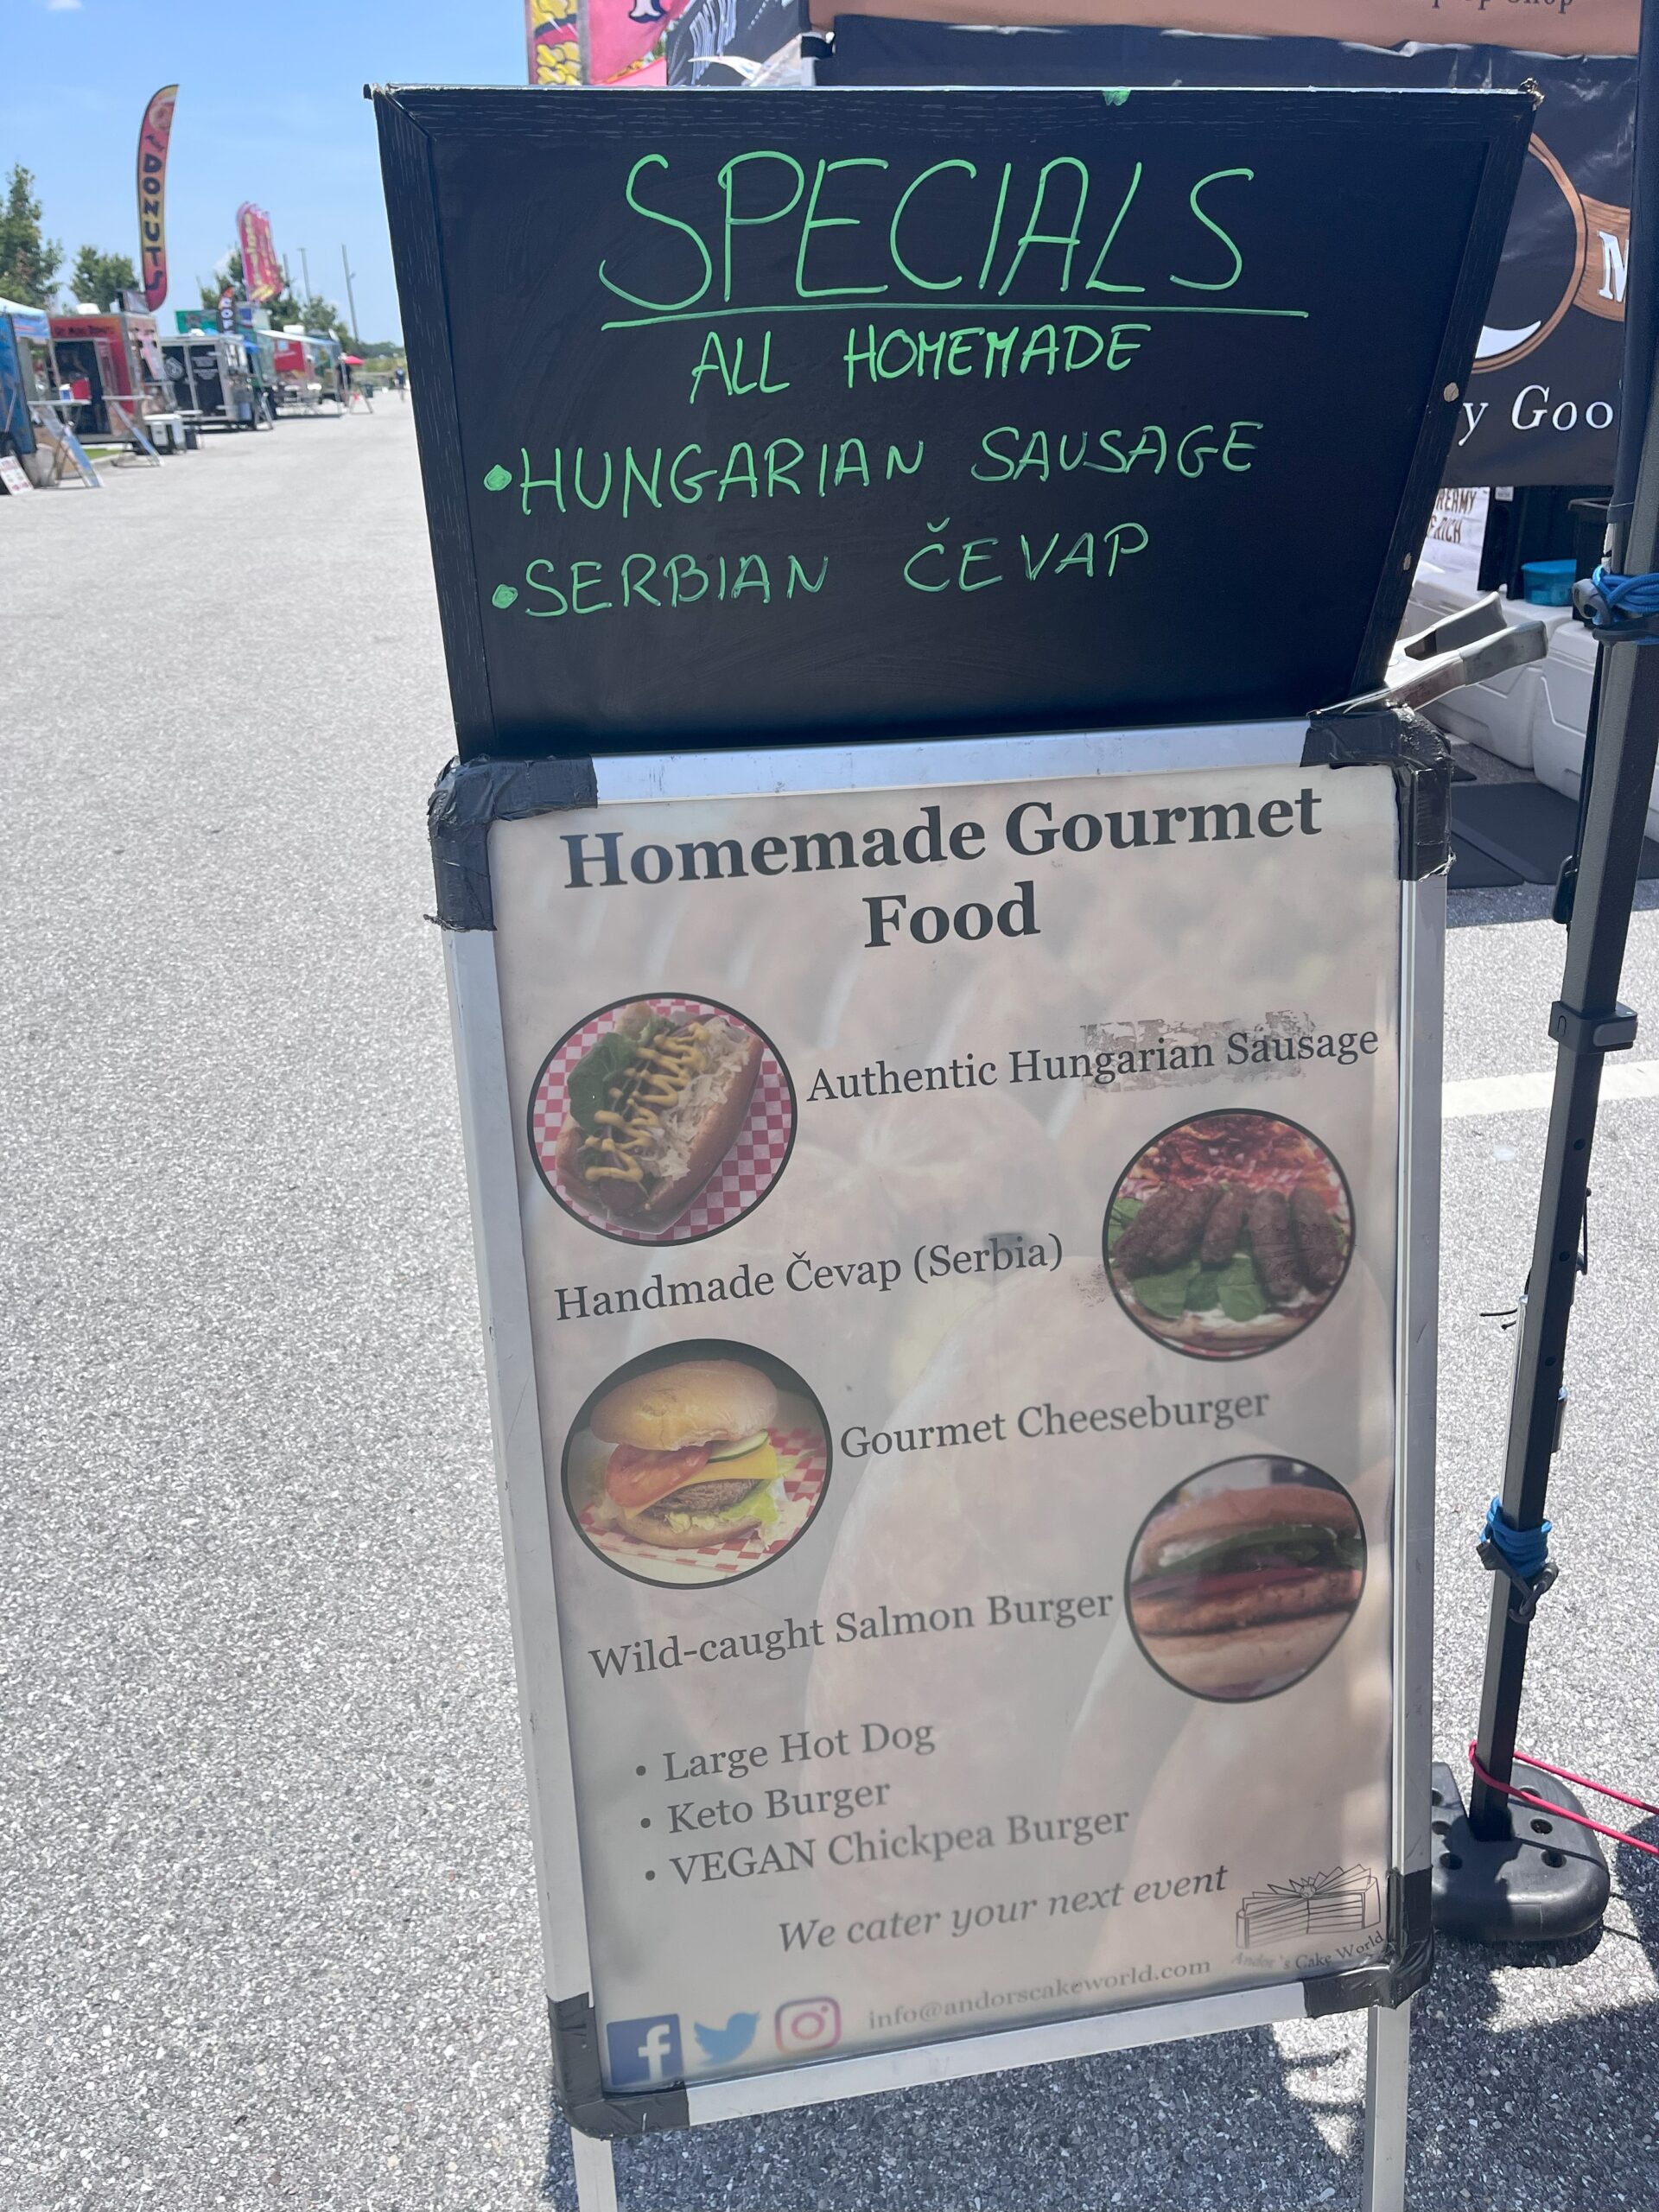 SPECIALS
ALL HOMEMADE
•HUNGARIAN SAUSAGE
•SERBIAN ČEVAP
Homemade Gourmet
Food
Authentic Hungarian Sausage
Handmade Čevap (Serbia)
Gourmet Cheeseburger
Wild-caught Salmon Burger
• Large Hot Dog
• Keto Burger
• VEGAN Chickpea Burger
We cater your next event
Andor's Cake World
info@andorscakeworld.com
DONUTS
y Goo